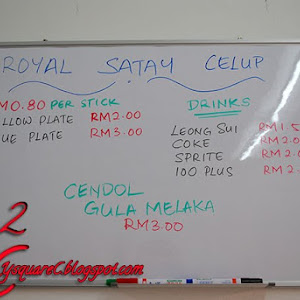 ROYAL SATAY CELUP
M0.80 PER STICK
LLOW PLATE RM2.00
UE PLATE RM3.00
DRINKS
LEONG SUI RM1.5
COKE RM2.0
SPRITE RM2.0
100 PLUS RM2.
CENDOL
GULA MELAKA
RM3.00
2
Yoquarec.blogspot.com